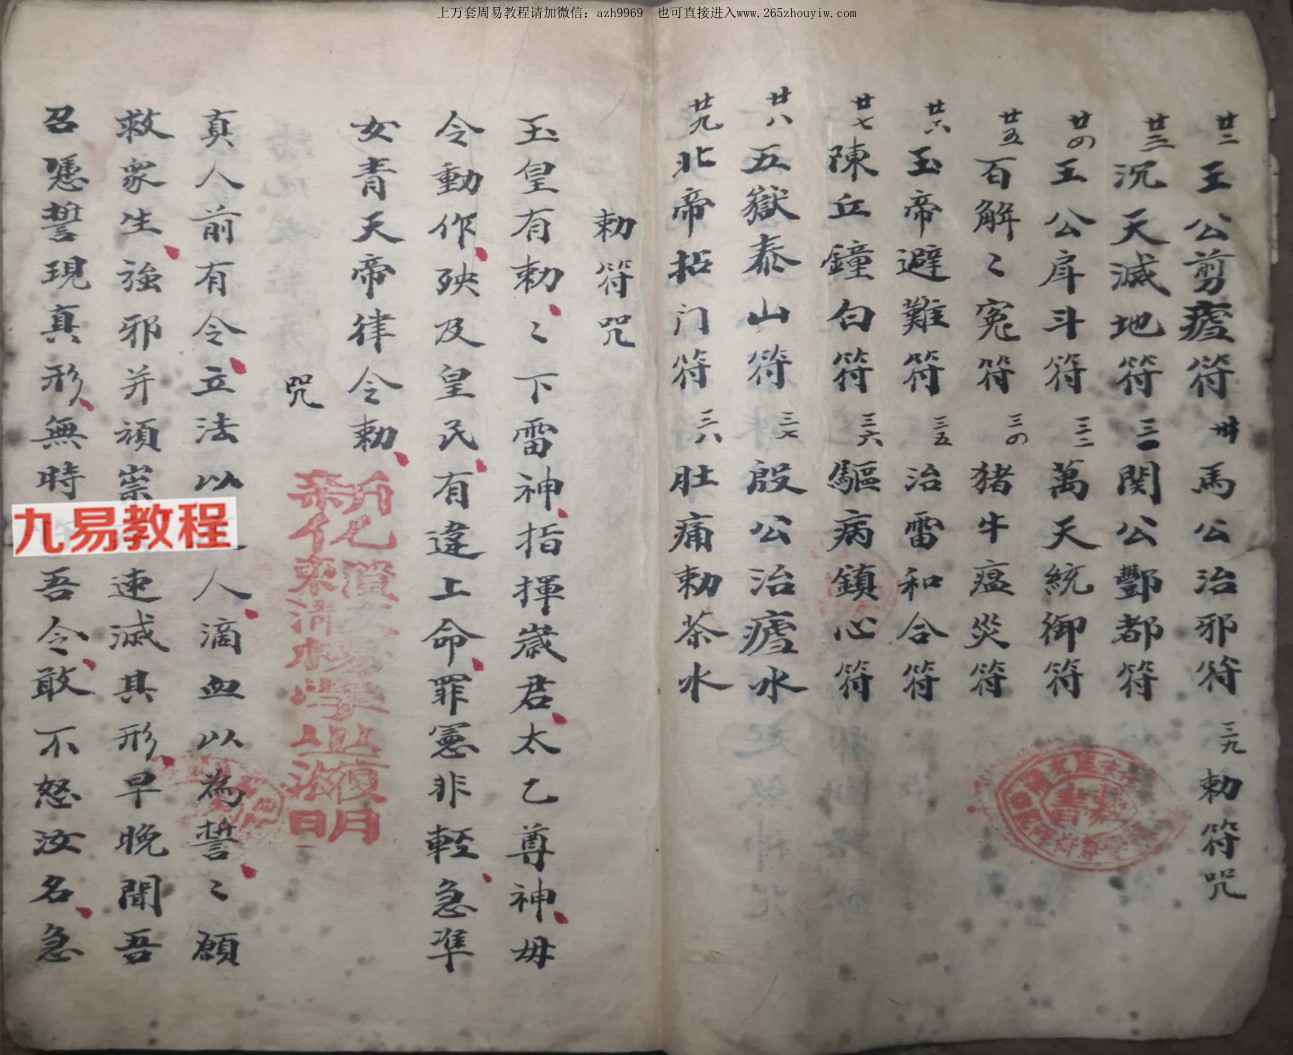 上万套周易教程请加微信：azh9969 也可直接进入www.265zhouyiw.com
廿二 王公剪瘧符 卅 馬公治邪符 三九 勅符咒
廿三 沉天滅地符 三一 関公酆都符
廿四 王公斗符 三二 萬天統御符
廿五 百解〻冤符 三四 猪牛瘟災符
廿六 玉帝避難符 三五 治雷和合符
廿七 陳丘鐘白符 三六 驅病鎮心符
廿八 五嶽泰山符 三七 殷公治瘧水
廿九 北帝招门符 三八 肚痛勅茶水
勅符咒
玉皇有勅〻下雷神指揮歲君太乙尊神毋
令動作殃及皇民有違上命罪憲非輕急準
女青天帝律令勅
咒
真人前有令立法以人滴血以為誓〻願
救衆生強邪并頑祟速滅其形早晚聞吾
召憑誓現真形無時吾令敢不怒汝名急
九易教程